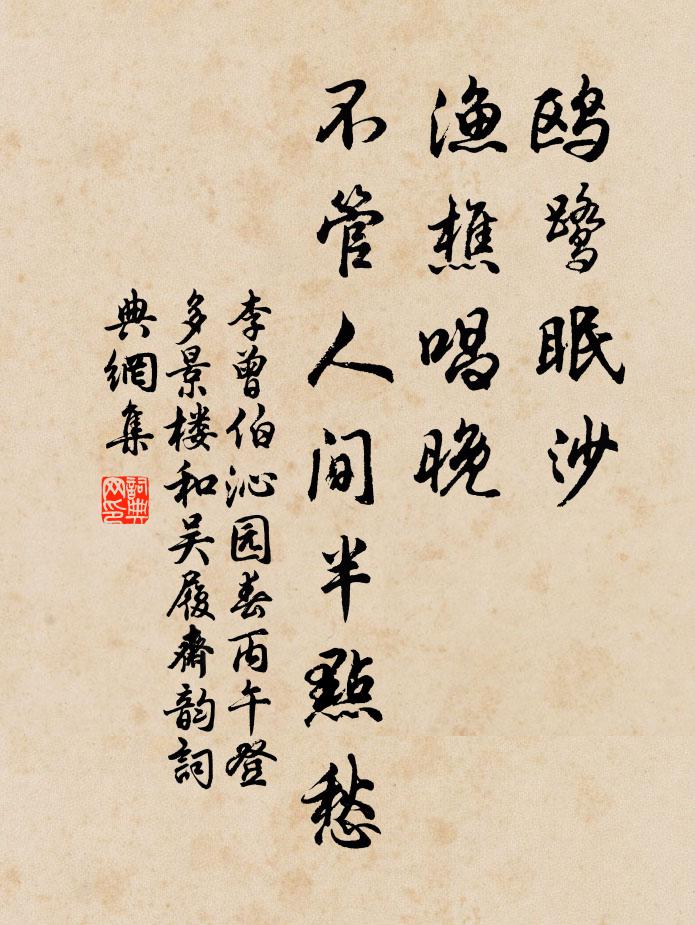 鸥鹭眠沙
渔樵唱晚
不管人间半點愁
李曾伯沁园春丙午登
多景楼和吴履斋韵詞
典網集
詞典网印